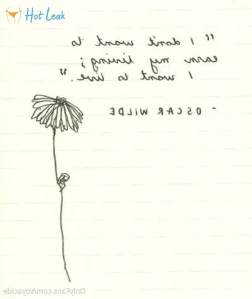 Hot Leak
"I don't want to
earn my living;
I want to live."
- OSCAR WILDE
OnlyFans.com/soyacide